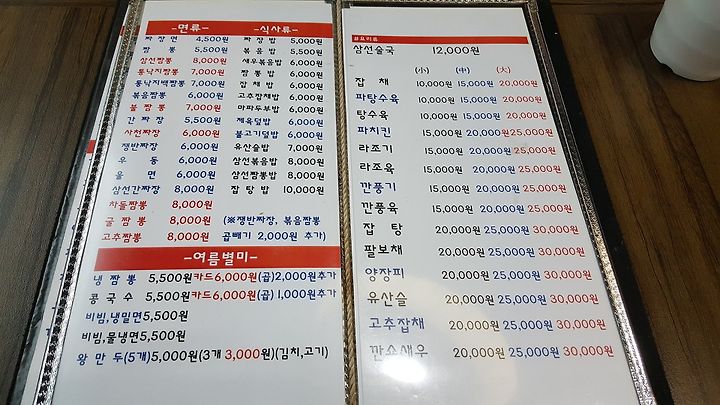 -면류-
짜장면 4,500원
짬뽕 5,500원
삼선짬뽕 8,000원
통낙지짬뽕 7,000원
통낙지백짬뽕 7,000원
볶음짬뽕 6,000원
불짬뽕 7,000원
간짜장 5,500원
사천짜장 6,000원
쟁반짜장 6,000원
우동 6,000원
울면 6,000원
삼선간짜장 8,000원
차돌짬뽕 8,000원
굴짬뽕 8,000원
고추짬뽕 8,000원
-식사류-
짜장밥 5,000원
볶음밥 5,500원
새우볶음밥 6,000원
짬뽕밥 6,000원
잡채밥 6,000원
고추잡채밥 6,000원
마파두부밥 6,000원
제육덮밥 6,000원
불고기덮밥 6,000원
유산슬밥 7,000원
삼선볶음밥 8,000원
삼선짬뽕밥 8,000원
잡탕밥 10,000원
(※쟁반짜장, 볶음짬뽕
곱빼기 2,000원 추가)
-여름별미-
냉짬뽕 5,500원카드6,000원(곱)2,000원추가
콩국수 5,500원카드6,000원(곱)1,000원추가
비빔,냉밀면5,500원
비빔,물냉면5,500원
왕만두(5개)5,000원(3개 3,000원)(김치,고기)
삼선술국 12,000원
(小) (中) (大)
잡채 10,000원 15,000원 20,000원
파탕수육 10,000원 15,000원 20,000원
탕수육 10,000원 15,000원 20,000원
파치킨 15,000원 20,000원 25,000원
라조기 15,000원 20,000원 25,000원
라조육 15,000원 20,000원 25,000원
깐풍기 15,000원 20,000원 25,000원
깐풍육 15,000원 20,000원 25,000원
잡탕 20,000원 25,000원 30,000원
팔보채 20,000원 25,000원 30,000원
양장피 20,000원 25,000원 30,000원
유산슬 20,000원 25,000원 30,000원
고추잡채 20,000원 25,000원 30,000원
깐쇼새우 20,000원 25,000원 30,000원